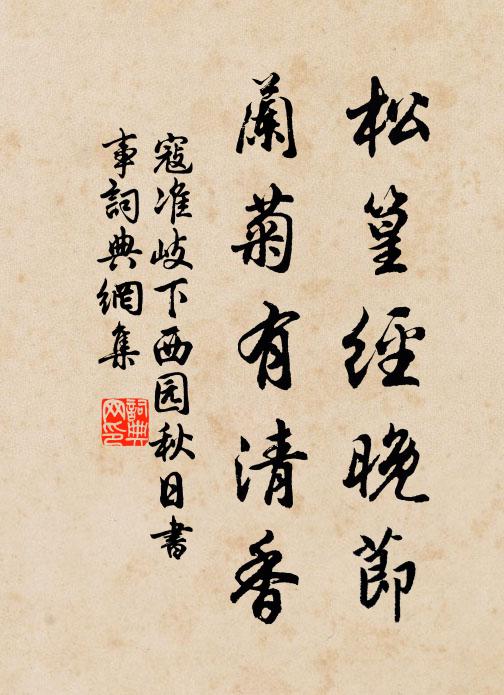 松篁經晚節
蘭菊有清香
寇准岐下西园秋日書
事詞典網集
詞典
网印